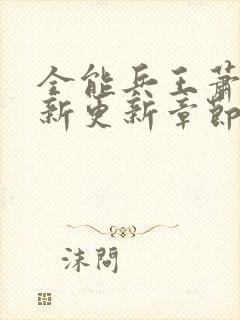 全能兵王萧
新更新章節
沫問